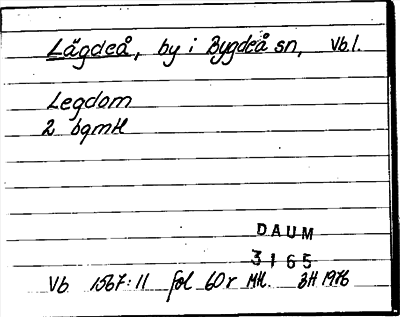 Lägdeå, by i Bygdeå sn, Vb.l.
Legdom
2 bgmH
DAUM
3165
Vb 1567:11 fol 60r MH. 3H 1976